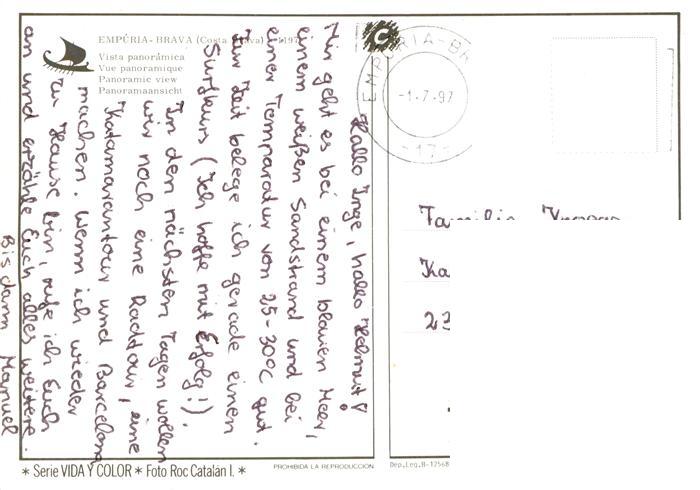 EMPÚRIA-BRAVA (Costa Brava) 1197
Vista panorámica
Vue panoramique
Panoramic view
Panoramaansicht
Hallo Inge, hallo Helmut!
Mir geht es bei einem blauen Meer,
einem weißen Sandstrand und bei
einer Temparatur von 25-30°C gut.
Zur Zeit belege ich gerade einen
Surfkurs (Ich hoffe mit Erfolg!).
In den nächsten Tagen wollen
wir noch eine Raddtour, eine
Katamarantour und Barcelona
machen. Wenn ich wieder
zu Hause bin, rufe ich Euch
an und erzähle Euch alles weitere.
Bis dann Manuel
EMPURIA-BR
-1.7.97
-17-
Familie
Ka
23
* Serie VIDA Y COLOR * Foto Roc Catalán I. *
PROHIBIDA LA REPRODUCCION
Dep.Leg.B-12568